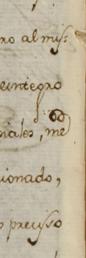 ro al mis:
reintegro
iales, me
ionado,
o preciso